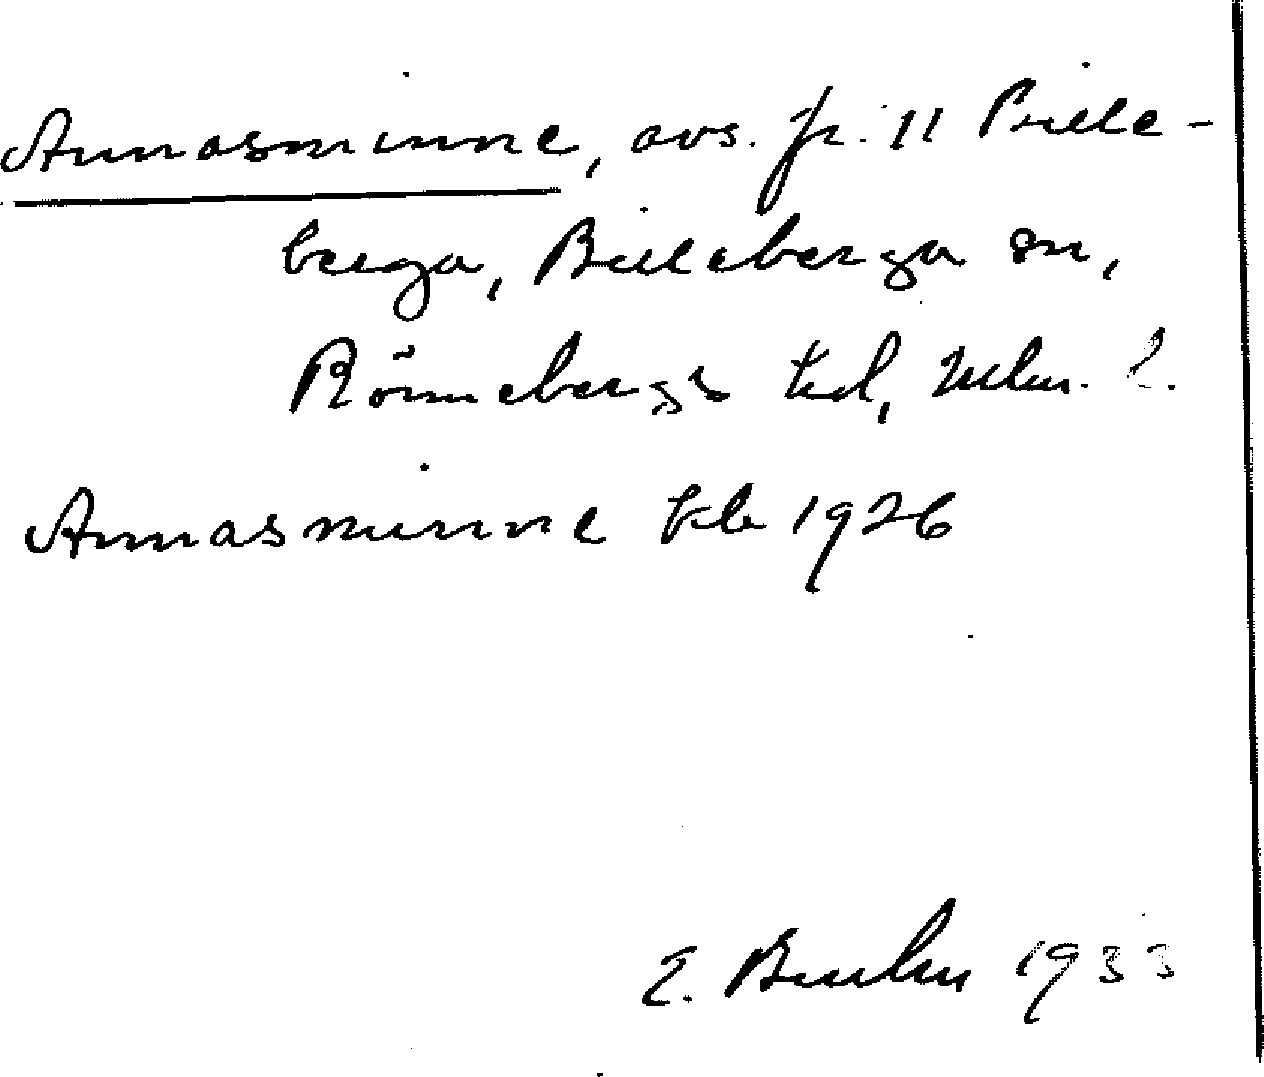 Annasminne, avs. fr. 11 Bille-
berga, Billeberga sn,
Rönnebergs hd, Mlm. l.
Annasminne Fb 1926
E. 1933